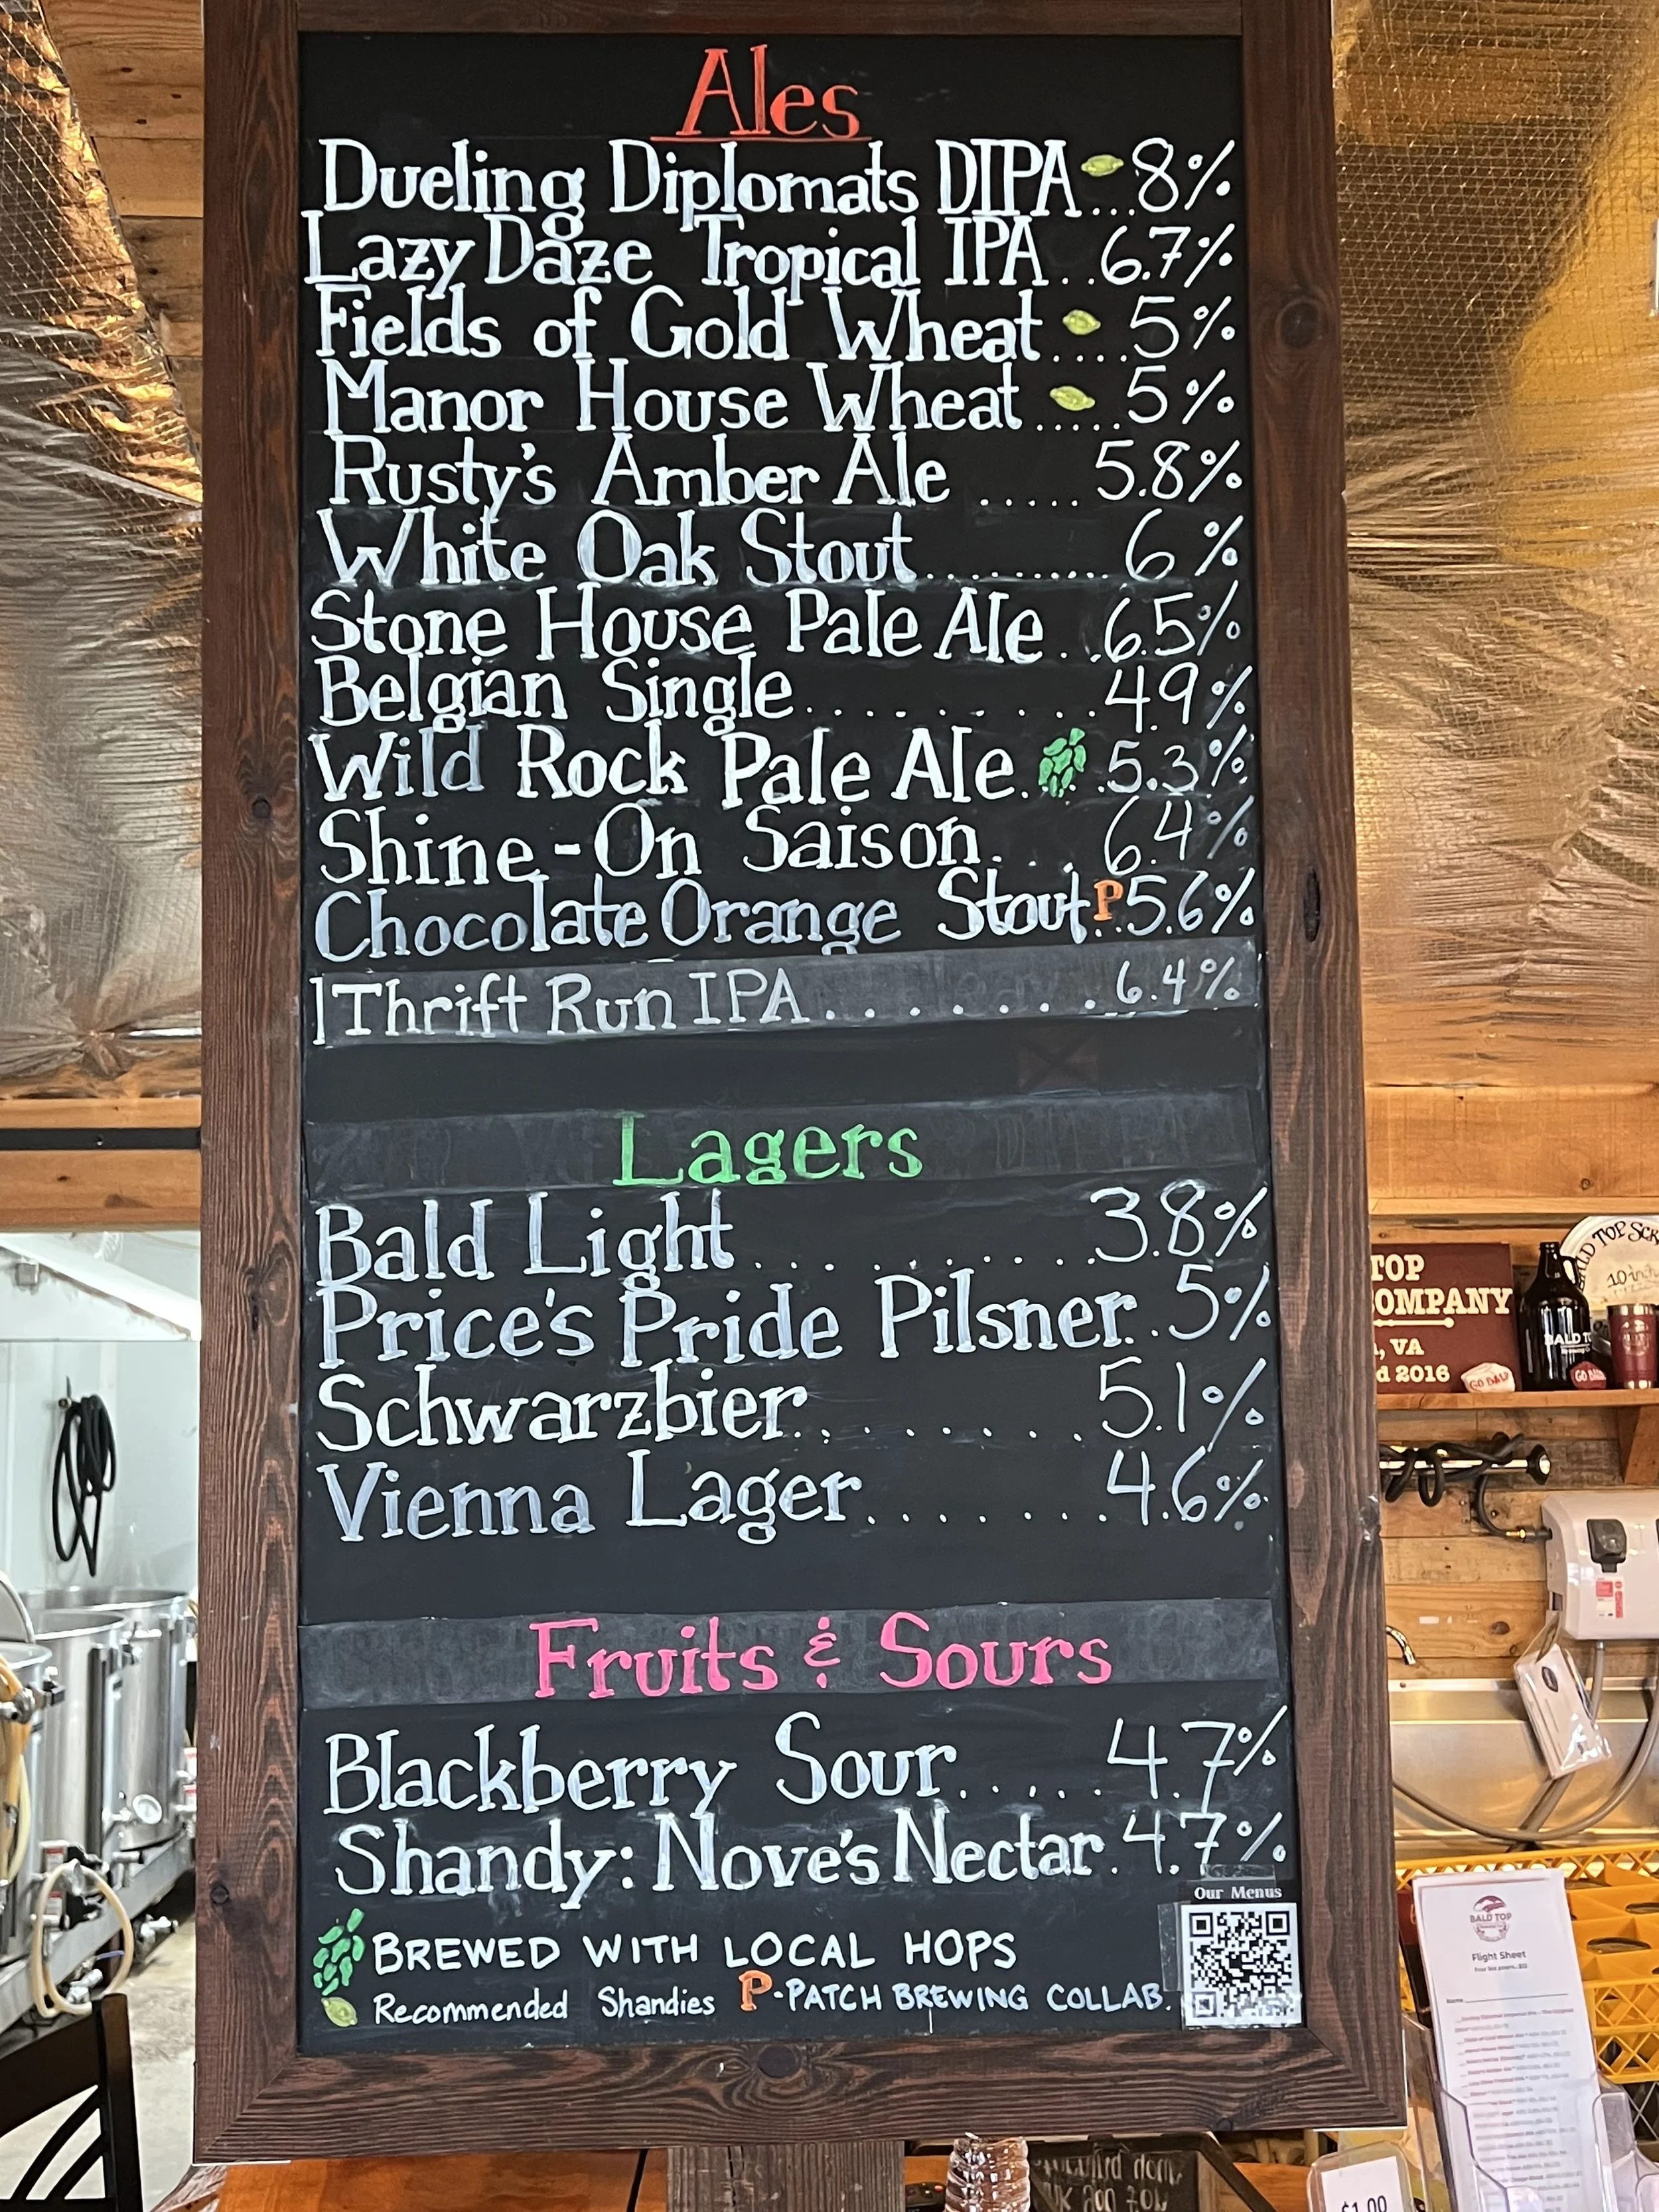 Ales
Dueling Diplomats DIPA...8%
Lazy Daze Tropical IPA..6.7%
Fields of Gold Wheat....5%
Manor House Wheat.....5%
Rusty's Amber Ale.....5.8%
White Oak Stout.........6%
Stone House Pale Ale..6.5%
Belgian Single.........4.9%
Wild Rock Pale Ale...5.3%
Shine-On Saison...6.4%
Chocolate Orange Stout P..5.6%
Thrift Run IPA........6.4%
Lagers
Bald Light.........3.8%
Price's Pride Pilsner..5%
Schwarzbier........5.1%
Vienna Lager.......4.6%
Fruits & Sours
Blackberry Sour.....4.7%
Shandy: Nove's Nectar.4.7%
Our Menus
BREWED WITH LOCAL HOPS
Recommended Shandies P-PATCH BREWING COLLAB.
TOP
COMPANY
, VA
d 2016
BALD TOP SCR
10 inch
BALD TO
Brewing
BALD TOP
Flight Sheet
$1.00